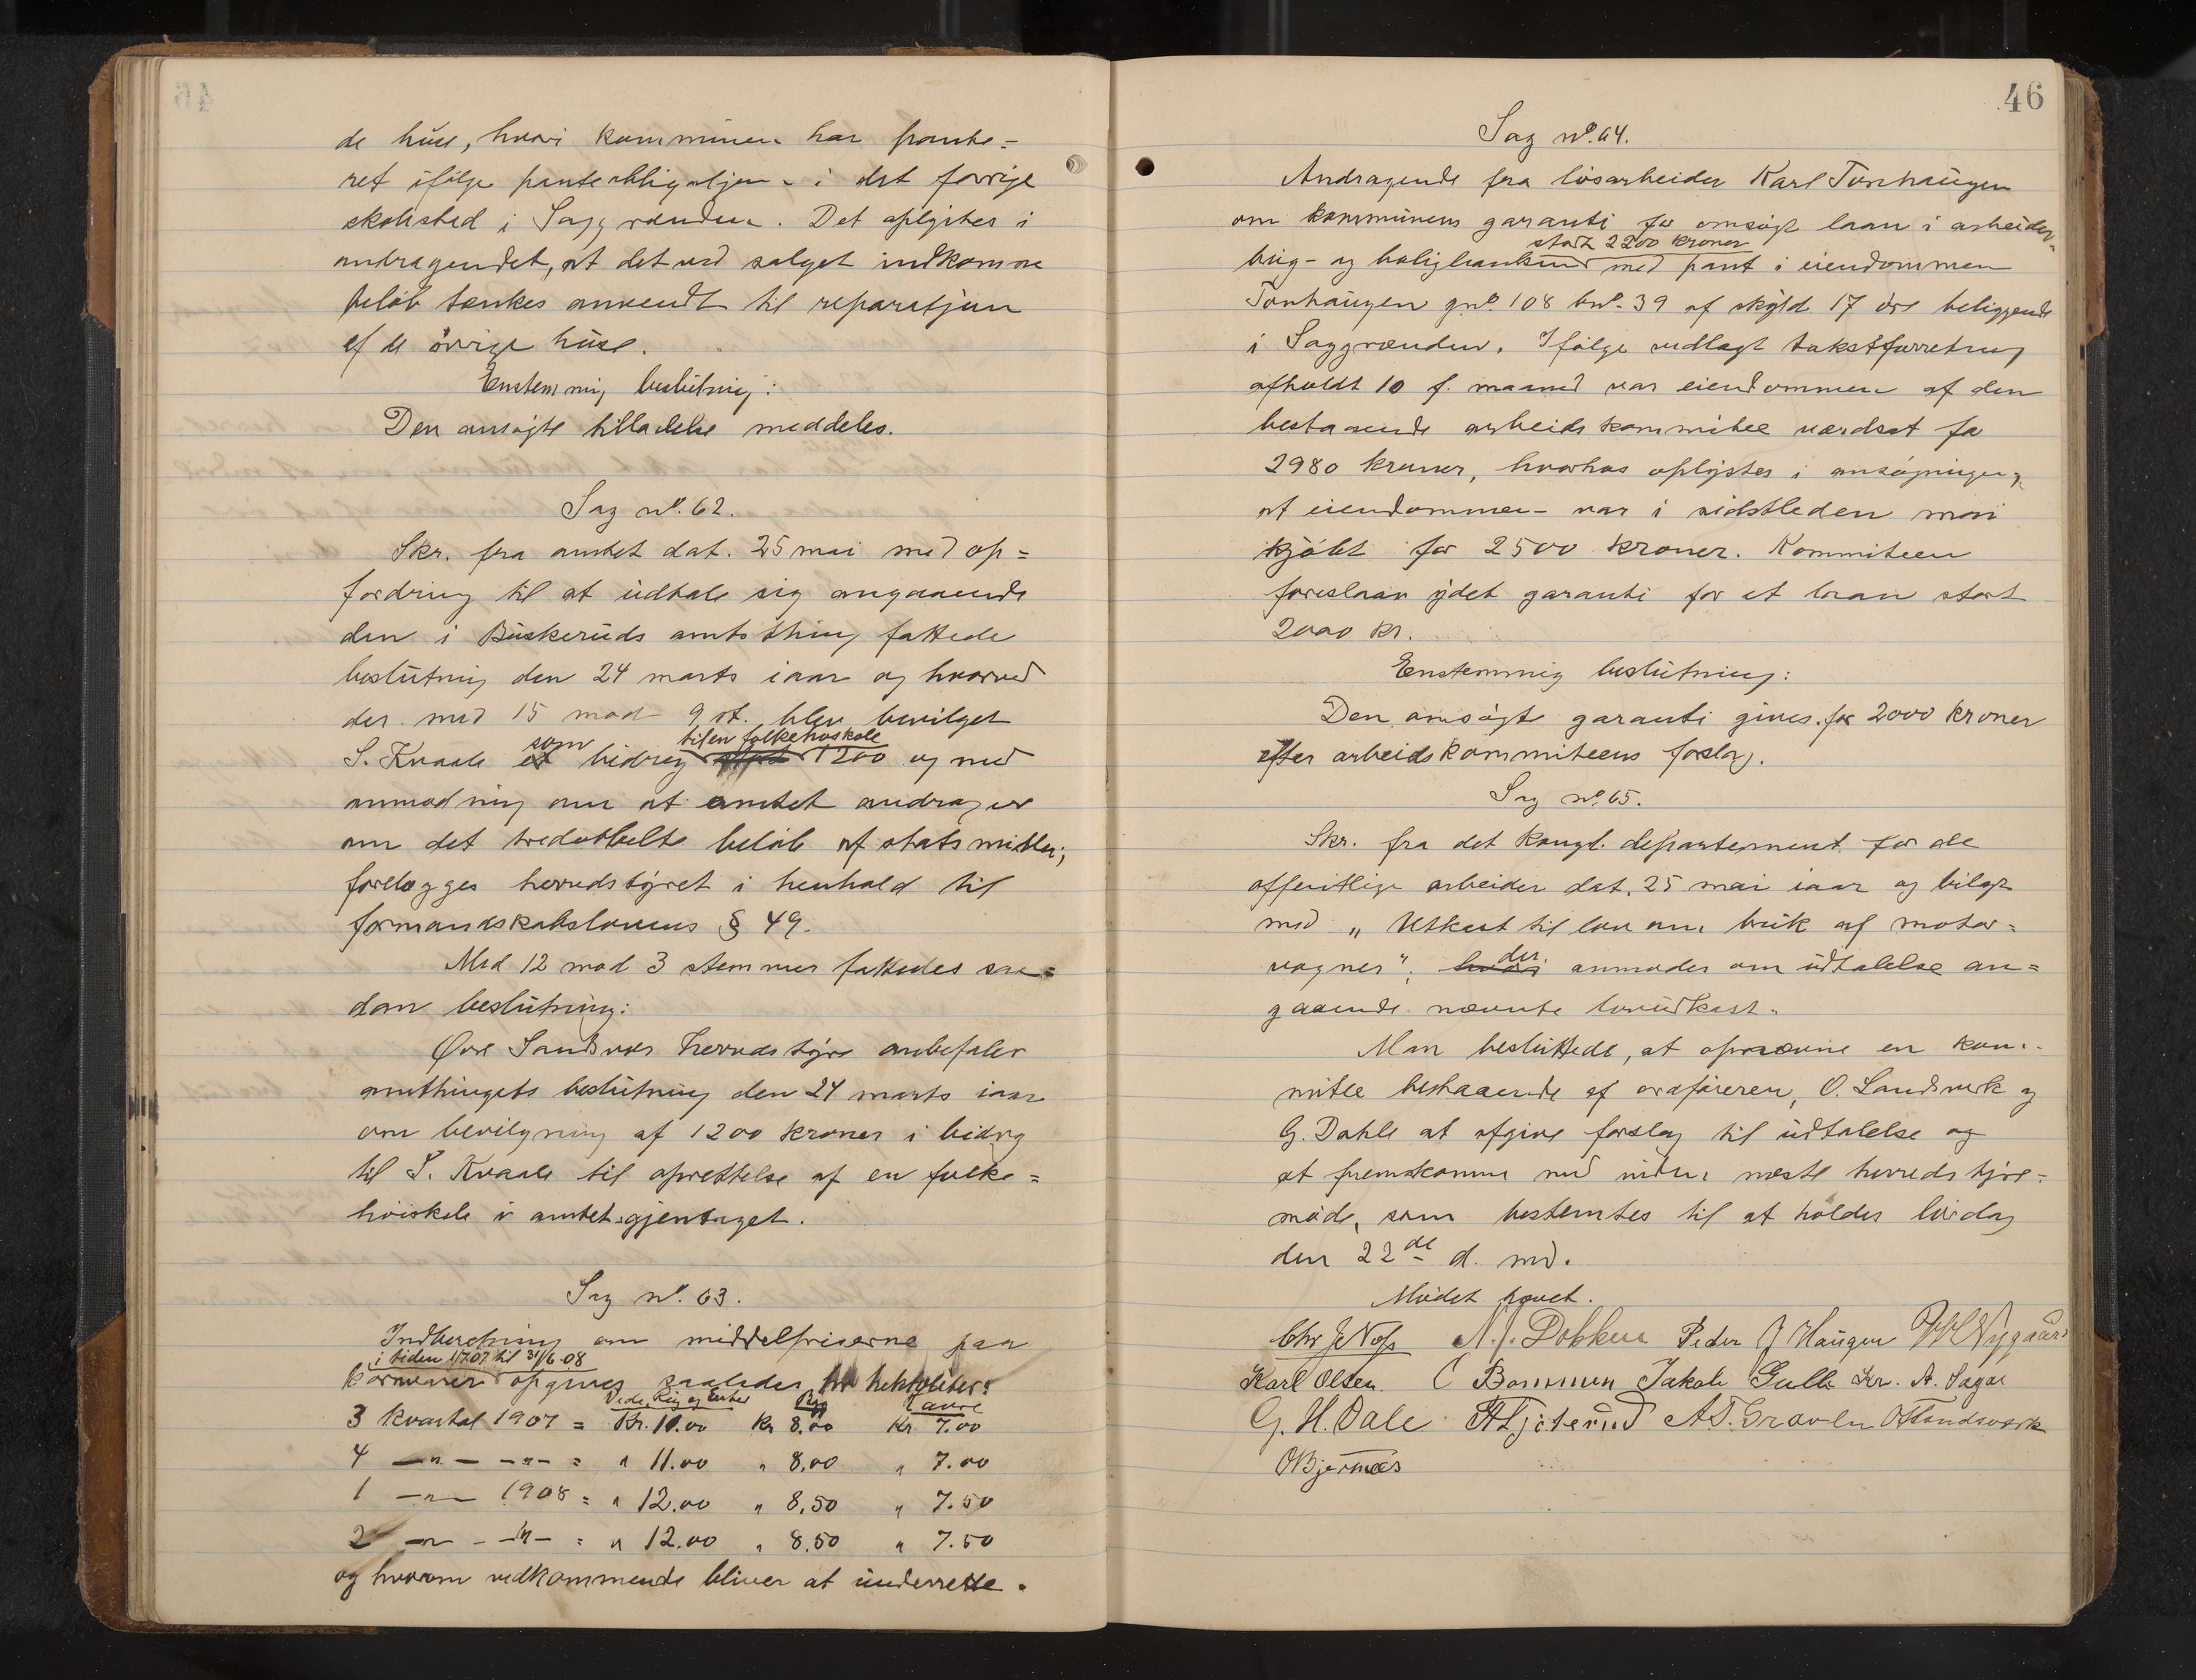 de huse, hvori kommunen har pante-
ret ifølge panteobligatjon i det forrige
skolested i Saggrænden. Det oplystes i
andragendet, at det ved salget indkomne
beløb tænkes anvendt til reparatjon
af de øvrige huse.
Enstemmig beslutning:
Den ansøgte tilladelse meddeles.
Sag nº. 62.
Skr. fra amtet dat. 25 mai med op=
fordring til at udtale sig angaaende
den i Buskeruds amtsthing fattede
beslutning den 24 marts iaar og hvorved
der med 15 mod 9 st. blev bevilget
som til en folkehøiskole
S. Kvaale et bidrag 1200 og med
anmodning om at amtet andrager
om det tredobbelte beløb af statsmidler,
forelægges herredstyret i henhold til
formandskabslovens § 49.
Med 12 mod 3 stemmer fattedes saa=
dan beslutning:
Øvre Sandsvær herredstyre anbefaler
amtthingets beslutning den 24 marts iaar
om bevilgning af 1200 kroner i bidrag
til S. Kvaale til oprettelse af en folke=
høiskole i amtet gjentaget.
Sag nº. 63.
Indberetning om middelpriserne paa
i tiden 1/7.07 til 31/6.08
kornvarer opgives saaledes pr hektoliter:
Hvede, Rug og Erter Byg Havre
3 kvartal 1907 = Kr. 10.00 Kr 8.00 Kr 7.00
4 —„— —„— = „ 11.00 „ 8,00 „ 7.00
1 —„— 1908 = „ 12.00 „ 8,50 „ 7.50
2 —„— —„— = „ 12.00 „ 8,50 „ 7.50
og hvorom vedkommende bliver at underrette.
46
Sag nº. 64.
Andragende fra løsarbeider Karl Tonhaugen
om kommunens garanti for ansøgt laan i arbeider-
stort 2200 kroner
brug- og boligbanken med pant i eiendommen
Tonhaugen gnº. 108 bnº. 39 af skyld 17 øre beliggende
i Saggrænden. Ifølge vedlagt takstforretning
afholdt 10 f. maaned var eiendommen af den
bestaaende arbeidskommitee værdsat for
2980 kroner, hvorhos oplystes i ansøgningen,
at eiendommen var i sidstleden mai
kjøbt for 2500 kroner. Kommiteen
foreslaar ydet garanti for et laan stort
2000 kr.
Enstemmig beslutning:
Den ansøgte garanti gives for 2000 kroner
efter arbeidskommiteens forslag.
Sag nº. 65.
Skr. fra det kongl. departement for de
offentlige arbeider dat. 25 mai iaar og bilagt
med „Utkast til lov om bruk af motor=
der
vogner", hvori anmodes om udtalelse an=
gaaende nævnte lovudkast.
Man besluttede, at opnævne en kom-
mitee bestaaende af ordføreren, O. Landsverk og
G. Dahle at afgive forslag til udtalelse og
at fremkomme med inden næste herredstyre-
møde, som bestemtes til at holdes lørdag
den 22de d. md.
Mødet hævet.
Chr J Næss N. J. Dokken Peder J Haugen Nygaard
Karl Olsen. C Bommen Jakob Gulli Kr. A. Sagai
G. H. Dale A. T. Graven O Landsværk
O Bjørnaas